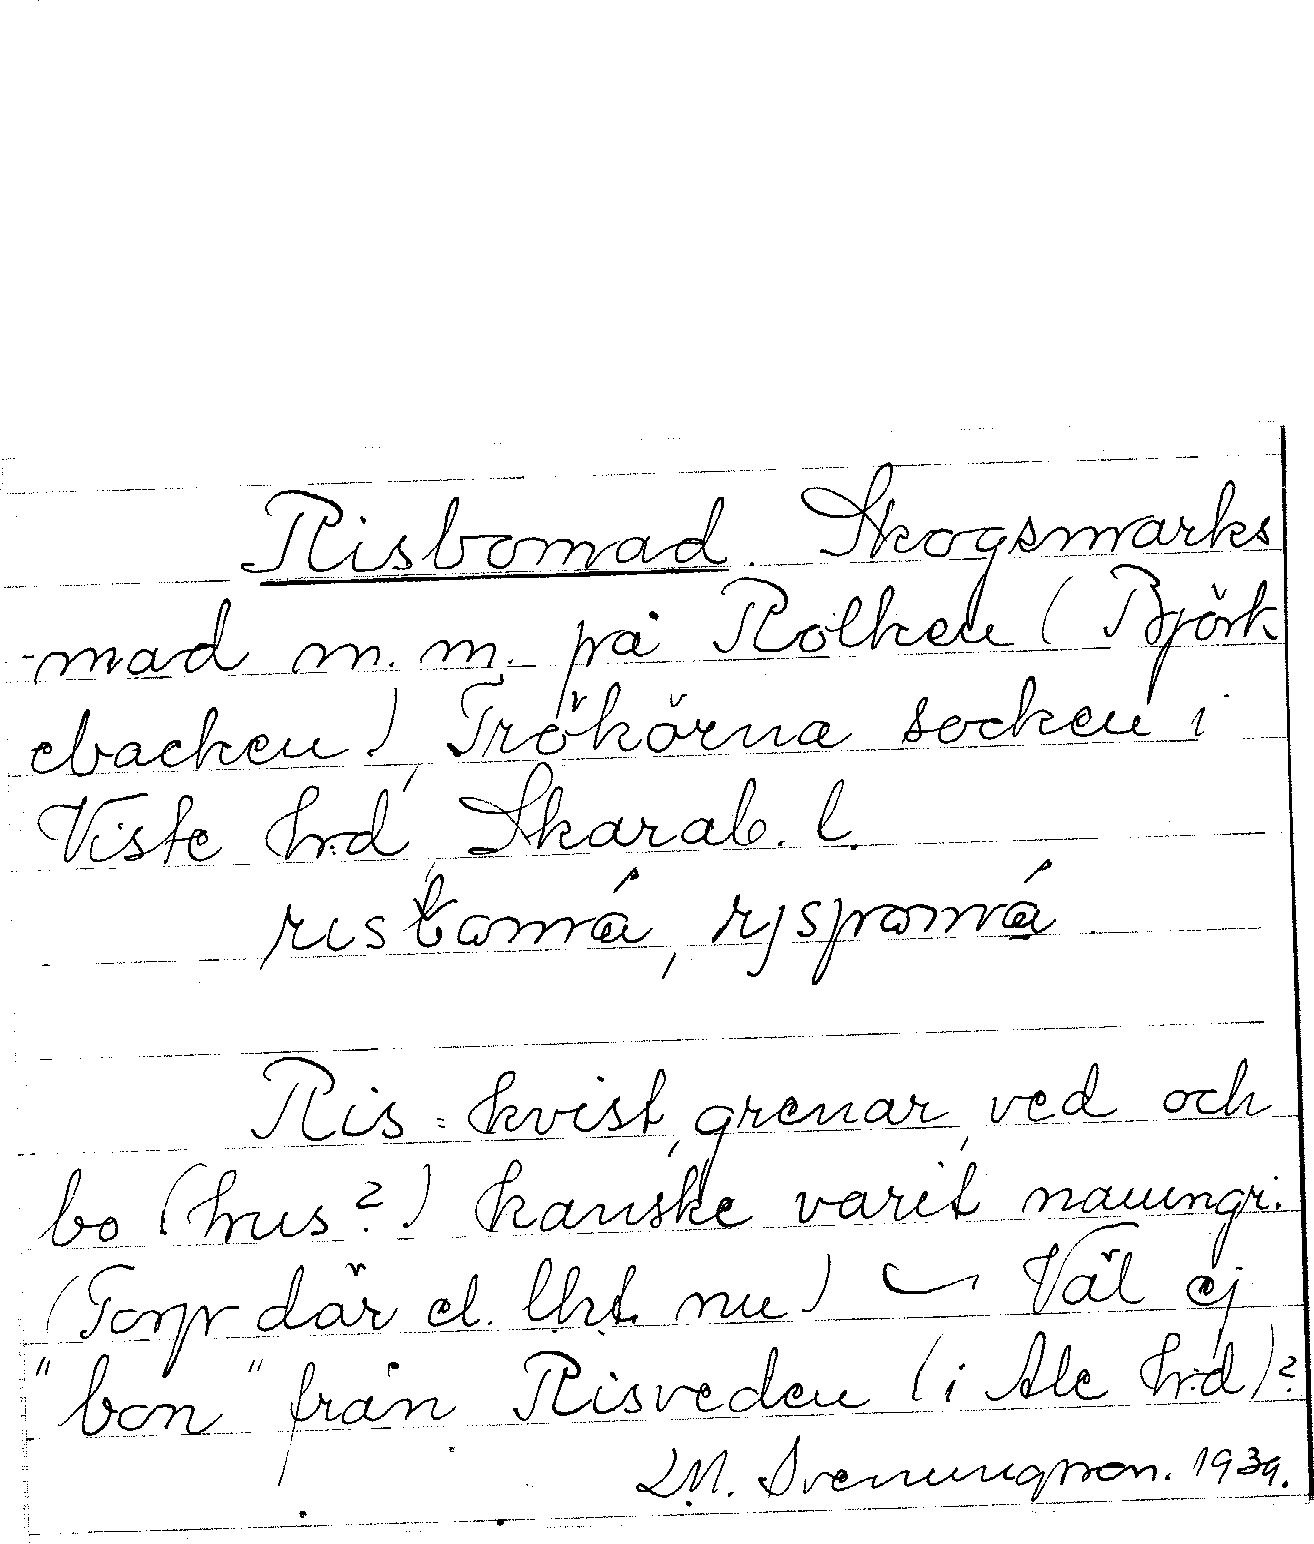 Risbomad. Skogsmarks
-mad m.m. på Rolken (Björk
ebacken), Trökörna socken i
Viste hrd, Skarab. l.
risbomá, rjspomá
Ris = kvist, grenar, ved och
bo (hus?) kanske varit namngi.
(Torp där el. lkt. nu) — Väl ej
"bon" från Risveden (i Ale hrd)?
LM. Svenungsson. 1939.